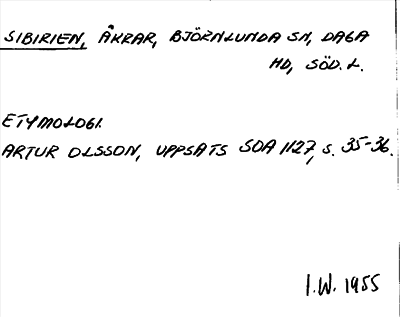 SIBIRIEN, ÅKRAR, BJÖRNLUNDA SN, DAGA
HD, SÖD. L.
ETYMOLOGI.
ARTUR OLSSON, UPPSATS SOA 1127, S. 35-36.
I.W. 1955